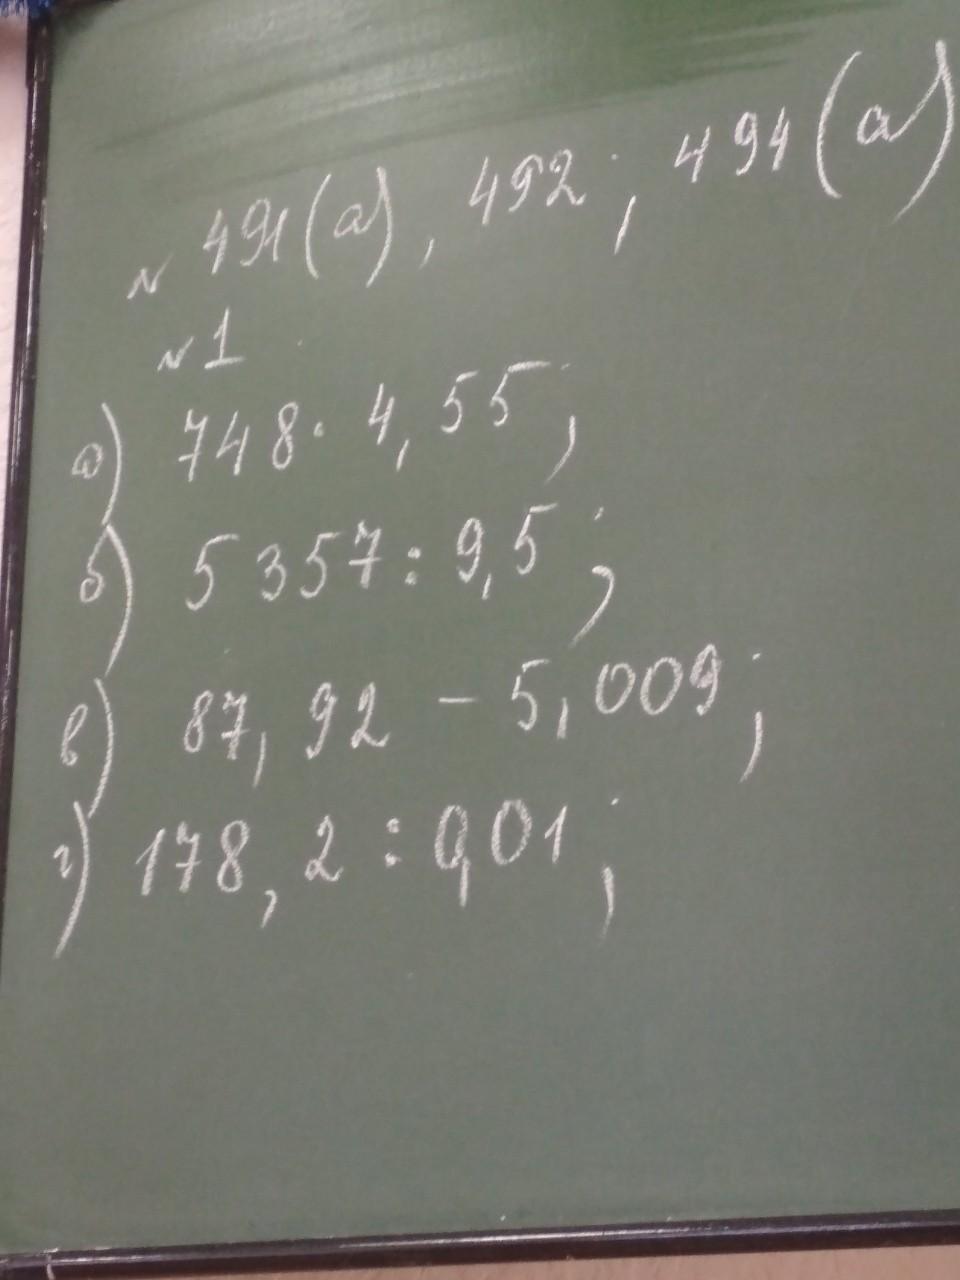 № 491(а), 492; 494(а)
№1
а) 748 · 4,55;
б) 5357 : 9,5;
в) 87,92 - 5,009;
г) 178,2 : 0,01;